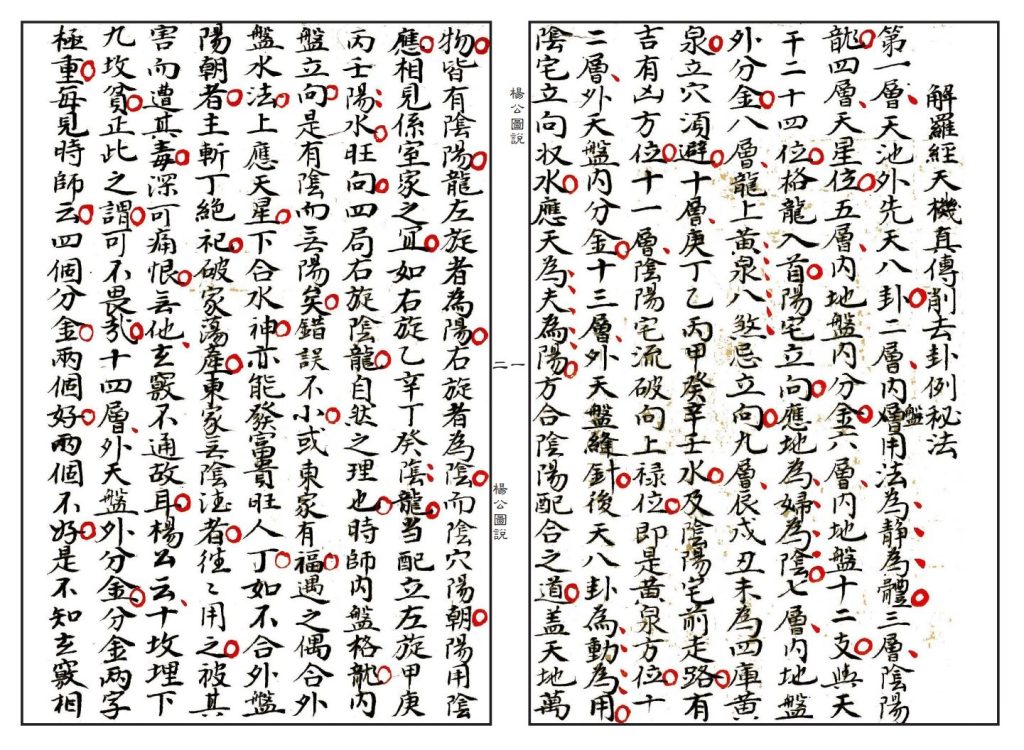 解羅經天機真傳削去卦例秘法
第一層天池外先天八卦二層內層盤用法為靜為體三層陰陽
龍四層天星位五層內地盤內分金六層內地盤十二支與天
干二十四位格龍入首陽宅立向應地為婦為陰七層內地盤
外分金八層龍上黃泉八煞忌立向九層辰戌丑未為四庫黃
泉立穴須避十層庚丁乙丙甲癸辛壬水及陰陽宅前走路有
吉有凶方位十一層陰陽宅流破向上祿位即是黃泉方位十
二層外天盤內分金十三層外天盤縫針後天八卦為動為用
陰宅立向収水應天為夫為陽方合陰陽配合之道蓋天地萬
楊公圖說
一
二
楊公圖說
物皆有陰陽龍左旋者為陽右旋者為陰而陰穴陽朝陽用陰
應相見係室家之宜如右旋乙辛丁癸陰龍当配立左旋甲庚
丙壬陽水旺向四局右旋陰龍自然之理也時師內盤格龍內
盤立向是有陰而无陽矣錯誤不小或東家有福遇之偶合外
盤水法上應天星下合水神亦能發富貴旺人丁如不合外盤
陽朝者主斬丁絕祀破家蕩產東家无陰德者往々用之被其
害而遭其毒深可痛恨无他玄竅不通故耳楊公云十坟埋下
九坟貧正此之謂可不畏哉十四層外天盤外分金分金兩字
極重每見時師云四個分金兩個好兩個不好是不知玄竅相